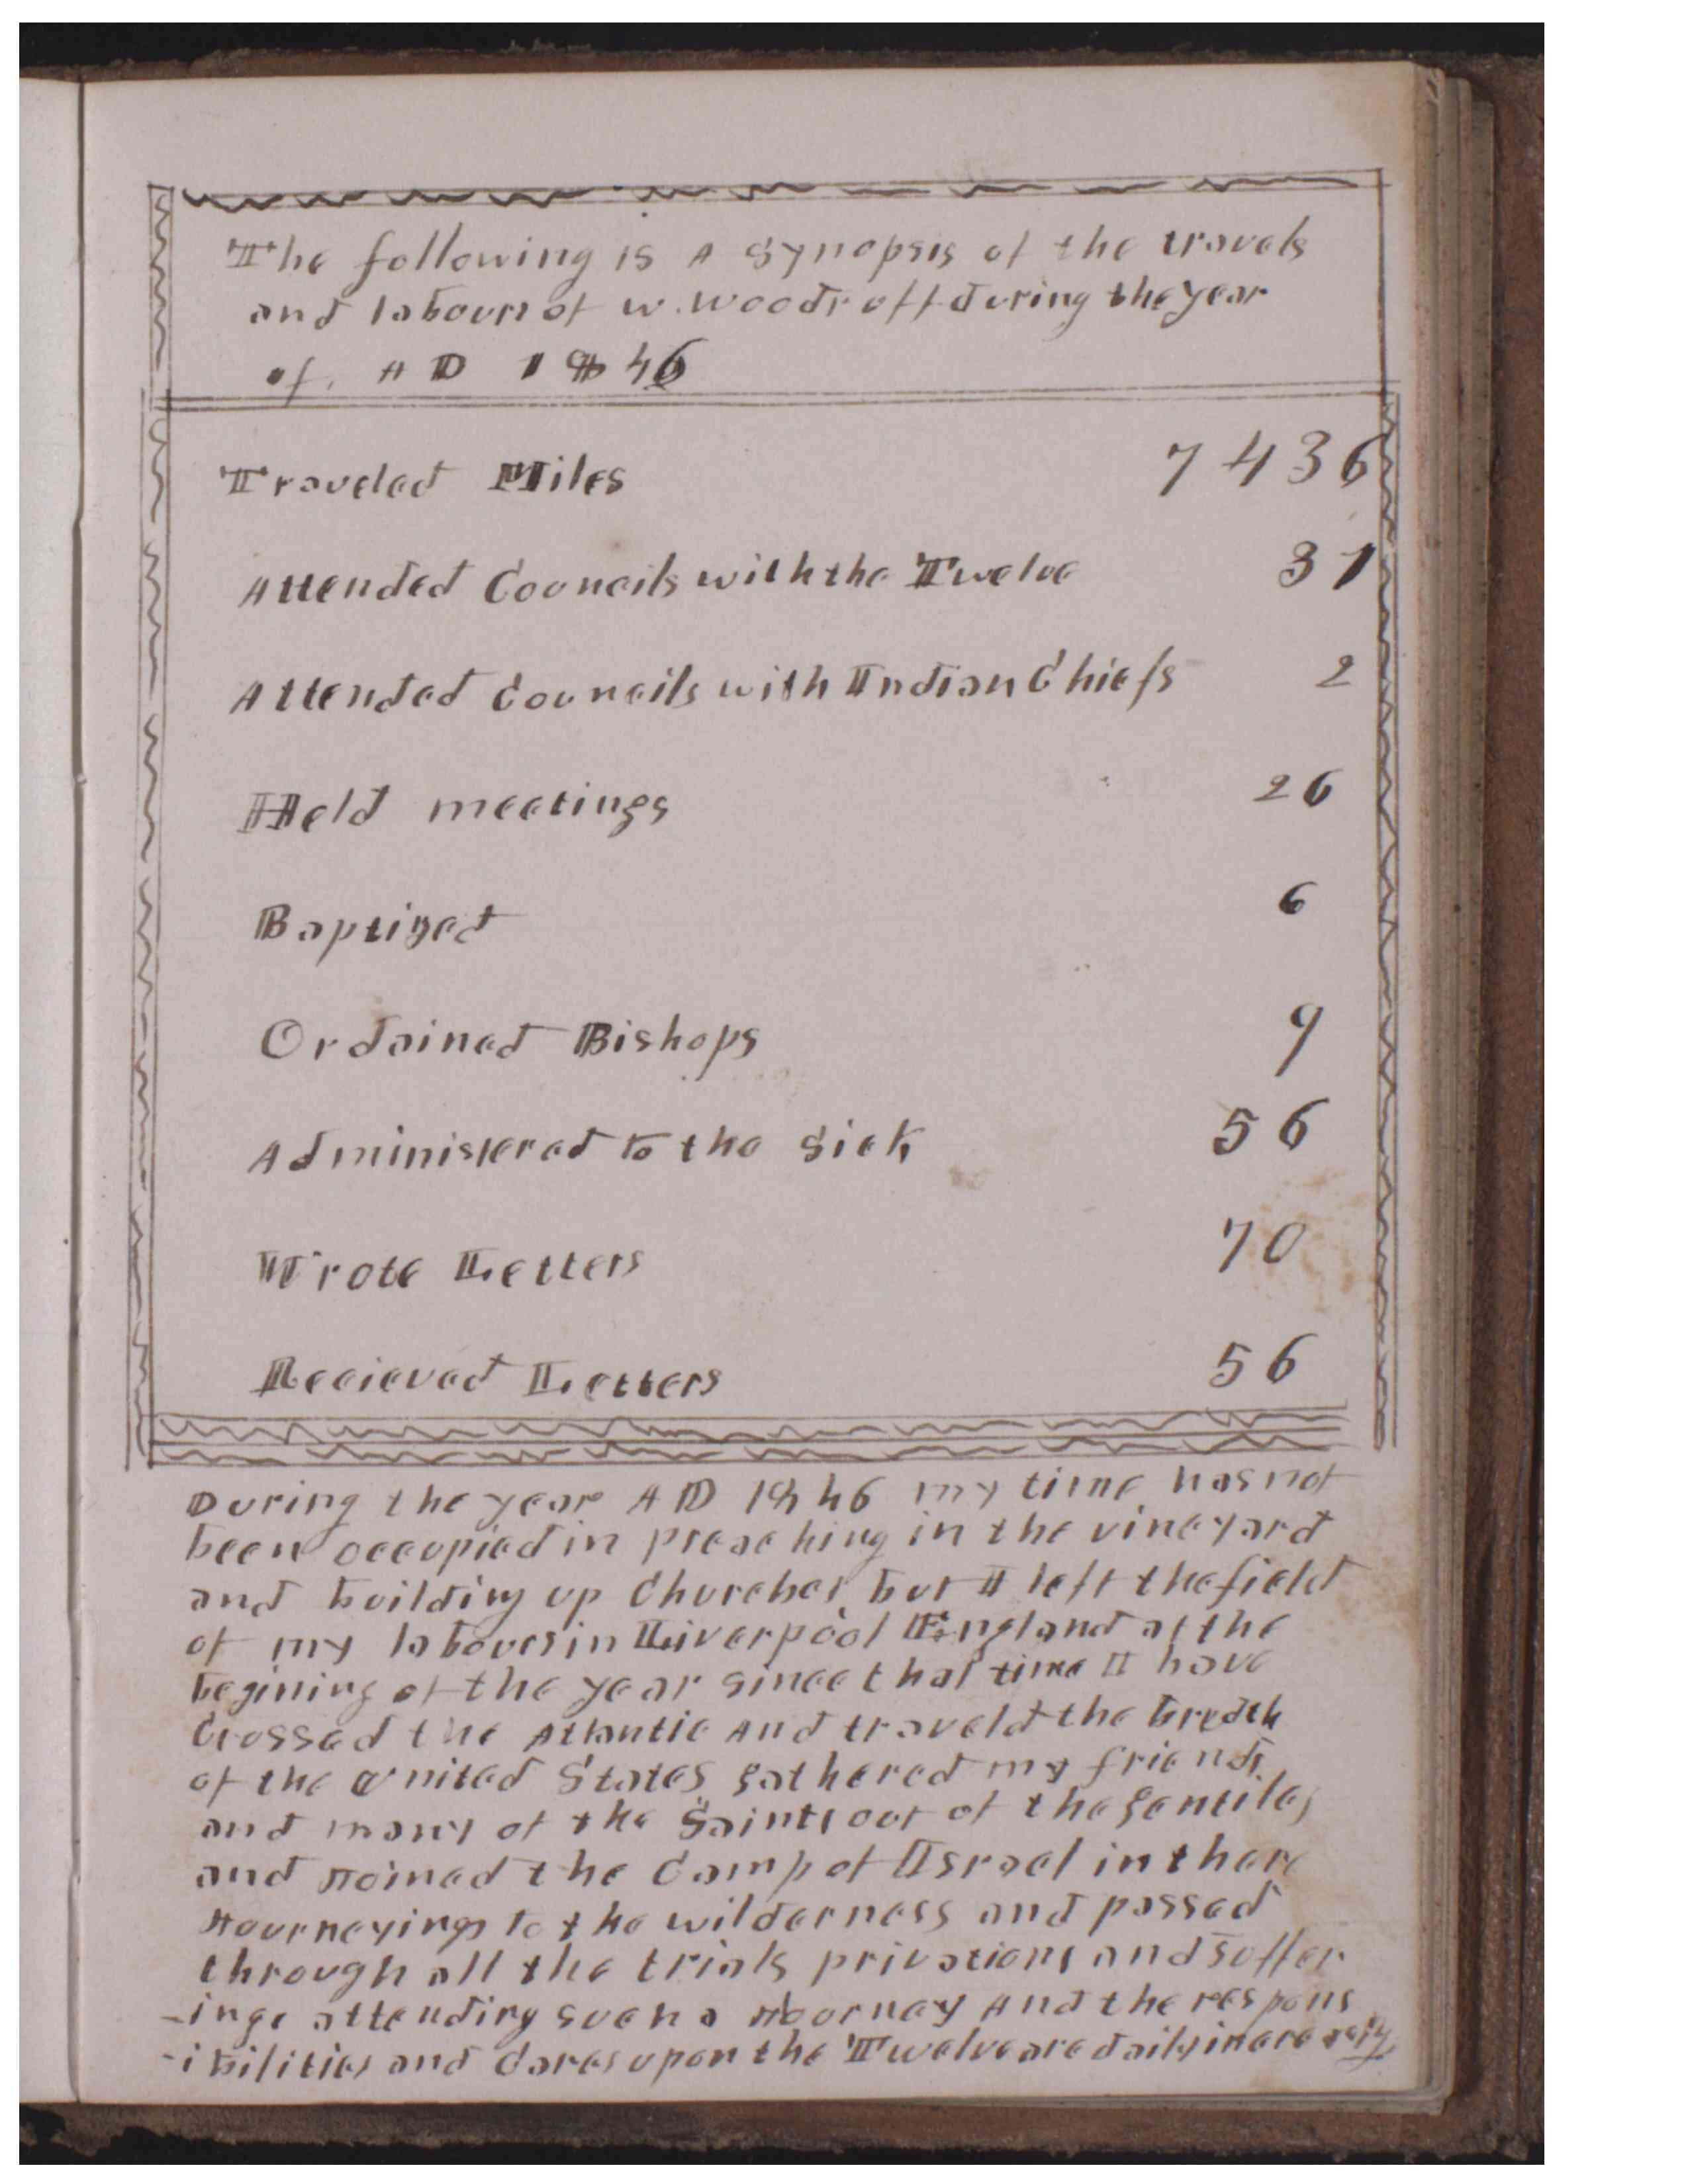 The following is A Synopsis of the travels
and labours of W. Woodruff during the year
of. AD 1846
Traveled Miles 7436
Attended Councils with the Twelve 31
Attended Councils with Indian Chiefs 2
Held meetings 26
Baptized 6
Ordained Bishops 9
Administered to the Sick 56
Wrote Letters 70
Recieved Letters 56
During the year AD 1846 my time has not
been occupied in preaching in the vineyard
and building up Churches but I left the field
of my labours in Liverpool England at the
begining of the year since that time I have
Crossed the Atlantic And traveld the bredth
of the United States gathered my friends
and many of the Saints out of the gentiles
and Joined the Camp of Israel in there
Journeyings to the wilderness and passed
through all the trials privations and suffer
-ings attending such a Journey And the respons
-ibilities and Cares upon the Twelve are daily increasing